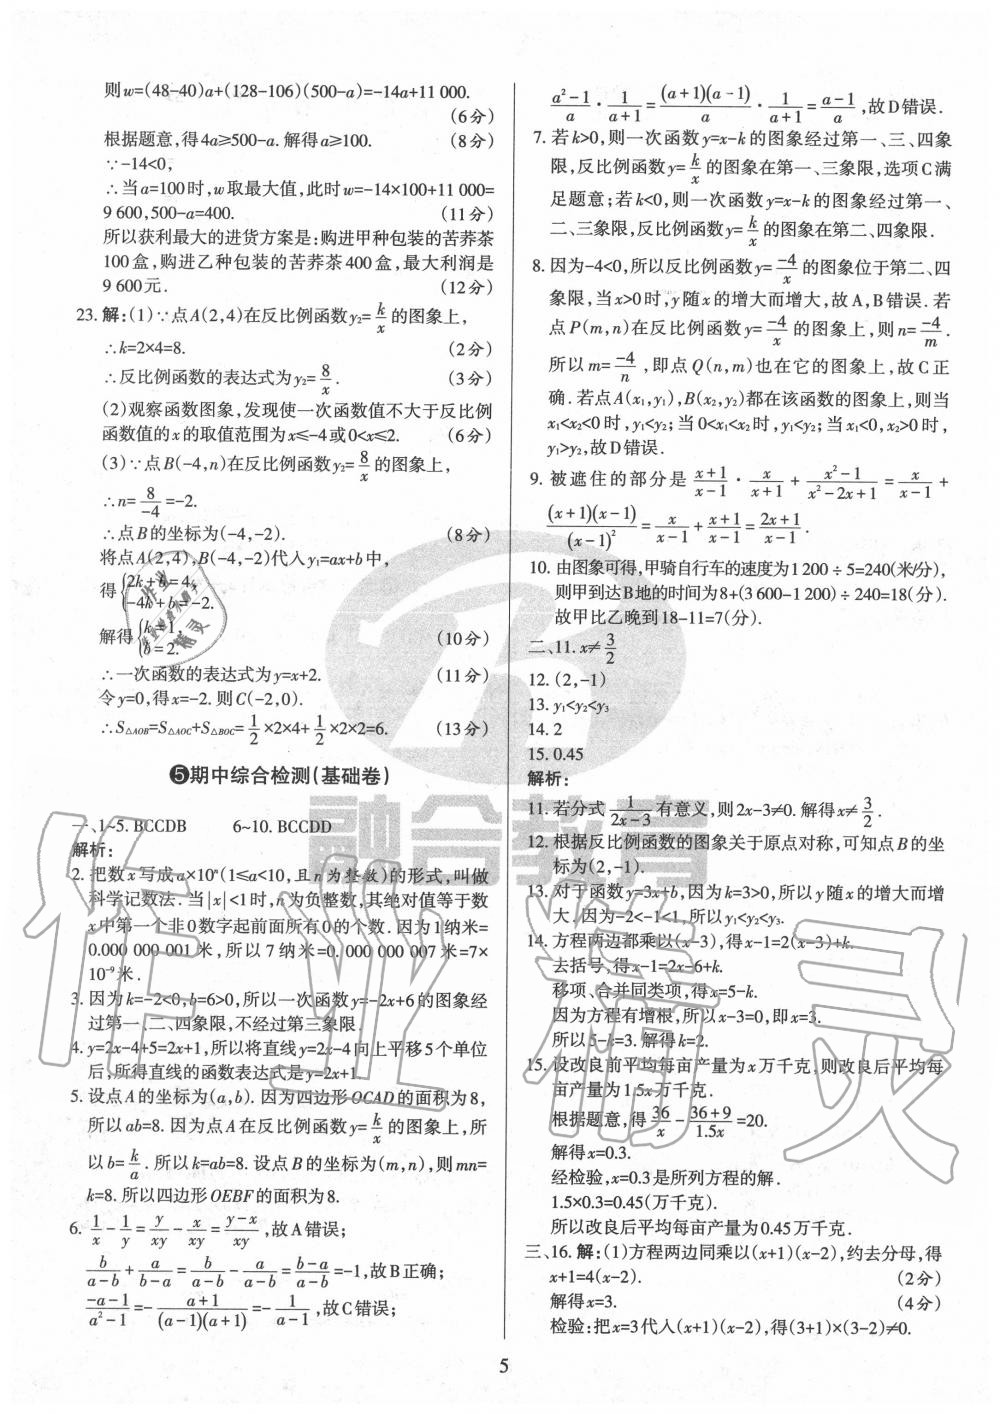 则w=(48-40)a+(128-106)(500-a)=-14a+11 000.
(6分)
根据题意,得4a≥500-a. 解得a≥100. (8分)
∵-14<0,
∴当a=100时,w取最大值,此时w=-14×100+11 000=
9 600,500-a=400. (11分)
所以获利最大的进货方案是:购进甲种包装的苦荞茶
100盒,购进乙种包装的苦荞茶400盒,最大利润是
9 600元. (12分)
23. 解:(1)∵点A(2,4)在反比例函数y₂=k/x的图象上,
∴k=2×4=8. (2分)
∴反比例函数的表达式为y₂=8/x. (3分)
(2)观察函数图象,发现使一次函数值不大于反比例
函数值的x的取值范围为x≤-4或0<x≤2. (6分)
(3)∵点B(-4,n)在反比例函数y₂=8/x的图象上,
∴n=8/-4=-2.
∴点B的坐标为(-4,-2). (8分)
将点A(2,4),B(-4,-2)代入y₁=ax+b中,
得{2k+b=4,
-4k+b=-2.
解得{k=1,
b=2. (10分)
∴一次函数的表达式为y=x+2. (11分)
令y=0,得x=-2. 则C(-2,0).
∴S△AOB=S△AOC+S△BOC=1/2×2×4+1/2×2×2=6. (13分)
❺期中综合检测(基础卷)
一、1~5. BCCDB 6~10. BCCDD
解析:
2. 把数x写成a×10ⁿ(1≤a<10,且n为整数)的形式,叫做
科学记数法. 当|x|<1时,n为负整数,其绝对值等于数
x中第一个非0数字起前面所有0的个数. 因为1纳米=
0.000 000 001米,所以7纳米=0.000 000 007米=7×
10⁻⁹米.
3. 因为k=-2<0,b=6>0,所以一次函数y=-2x+6的图象经
过第一、二、四象限,不经过第三象限.
4. y=2x-4+5=2x+1,所以将直线y=2x-4向上平移5个单位
后,所得直线的函数表达式是y=2x+1.
5. 设点A的坐标为(a,b). 因为四边形OCAD的面积为8,
所以ab=8. 因为点A在反比例函数y=k/x的图象上,所
以b=k/a. 所以k=ab=8. 设点B的坐标为(m,n),则mn=
k=8. 所以四边形OEBF的面积为8.
6. 1/x-1/y=y/xy-x/xy=(y-x)/xy,故A错误;
b/(a-b)+a/(b-a)=b/(a-b)-a/(a-b)=(b-a)/(a-b)=-1,故B正确;
(-a-1)/(a²-1)=-(a+1)/((a-1)(a+1))=-1/(a-1),故C错误;
(a²-1)/a·1/(a+1)=((a+1)(a-1))/a·1/(a+1)=(a-1)/a,故D错误.
7. 若k>0,则一次函数y=x-k的图象经过第一、三、四象
限,反比例函数y=k/x的图象在第一、三象限,选项C满
足题意;若k<0,则一次函数y=x-k的图象经过第一、
二、三象限,反比例函数y=k/x的图象在第二、四象限.
8. 因为-4<0,所以反比例函数y=-4/x的图象位于第二、四
象限,当x>0时,y随x的增大而增大,故A,B错误. 若
点P(m,n)在反比例函数y=-4/x的图象上,则n=-4/m.
所以m=-4/n,即点Q(n,m)也在它的图象上,故C正
确. 若点A(x₁,y₁),B(x₂,y₂)都在该函数的图象上,则当
x₁<x₂<0时,y₁<y₂;当0<x₁<x₂时,y₁<y₂;当x₁<0,x₂>0时,
y₁>y₂,故D错误.
9. 被遮住的部分是(x+1)/(x-1)·x/(x+1)+(x²-1)/(x²-2x+1)=x/(x-1)+
((x+1)(x-1))/(x-1)²=x/(x-1)+(x+1)/(x-1)=(2x+1)/(x-1).
10. 由图象可得,甲骑自行车的速度为1 200÷5=240(米/分),
则甲到达B地的时间为8+(3 600-1 200)÷240=18(分).
故甲比乙晚到18-11=7(分).
二、11. x≠3/2
12. (2,-1)
13. y₁<y₂<y₃
14. 2
15. 0.45
解析:
11. 若分式1/(2x-3)有意义,则2x-3≠0. 解得x≠3/2.
12. 根据反比例函数的图象关于原点对称,可知点B的坐
标为(2,-1).
13. 对于函数y=3x+b,因为k=3>0,所以y随x的增大而增
大. 因为-2<-1<1,所以y₁<y₂<y₃.
14. 方程两边都乘以(x-3),得x-1=2(x-3)+k.
去括号,得x-1=2x-6+k.
移项、合并同类项,得x=5-k.
因为方程有增根,所以x-3=0,即x=3.
所以5-k=3. 解得k=2.
15. 设改良前平均每亩产量为x万千克,则改良后平均每
亩产量为1.5x万千克.
根据题意,得36/x-(36+9)/1.5x=20.
解得x=0.3.
经检验,x=0.3是所列方程的解.
1.5×0.3=0.45(万千克).
所以改良后平均每亩产量为0.45万千克.
三、16. 解:(1)方程两边同乘以(x+1)(x-2),约去分母,得
x+1=4(x-2). (2分)
解得x=3. (4分)
检验:把x=3代入(x+1)(x-2),得(3+1)×(3-2)≠0.
5
融合教育
作业精灵